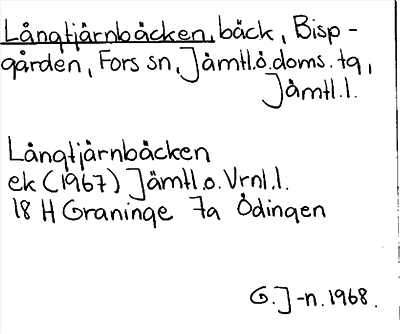 Långtjärnbäcken, bäck, Bisp-
gården, Fors sn, Jämtl.ö.doms.tg,
Jämtl.l.
Långtjärnbäcken
ek (1967) Jämtl o. Vrnl.l.
18 H Graninge 7a Ödingen
G.J-n.1968.